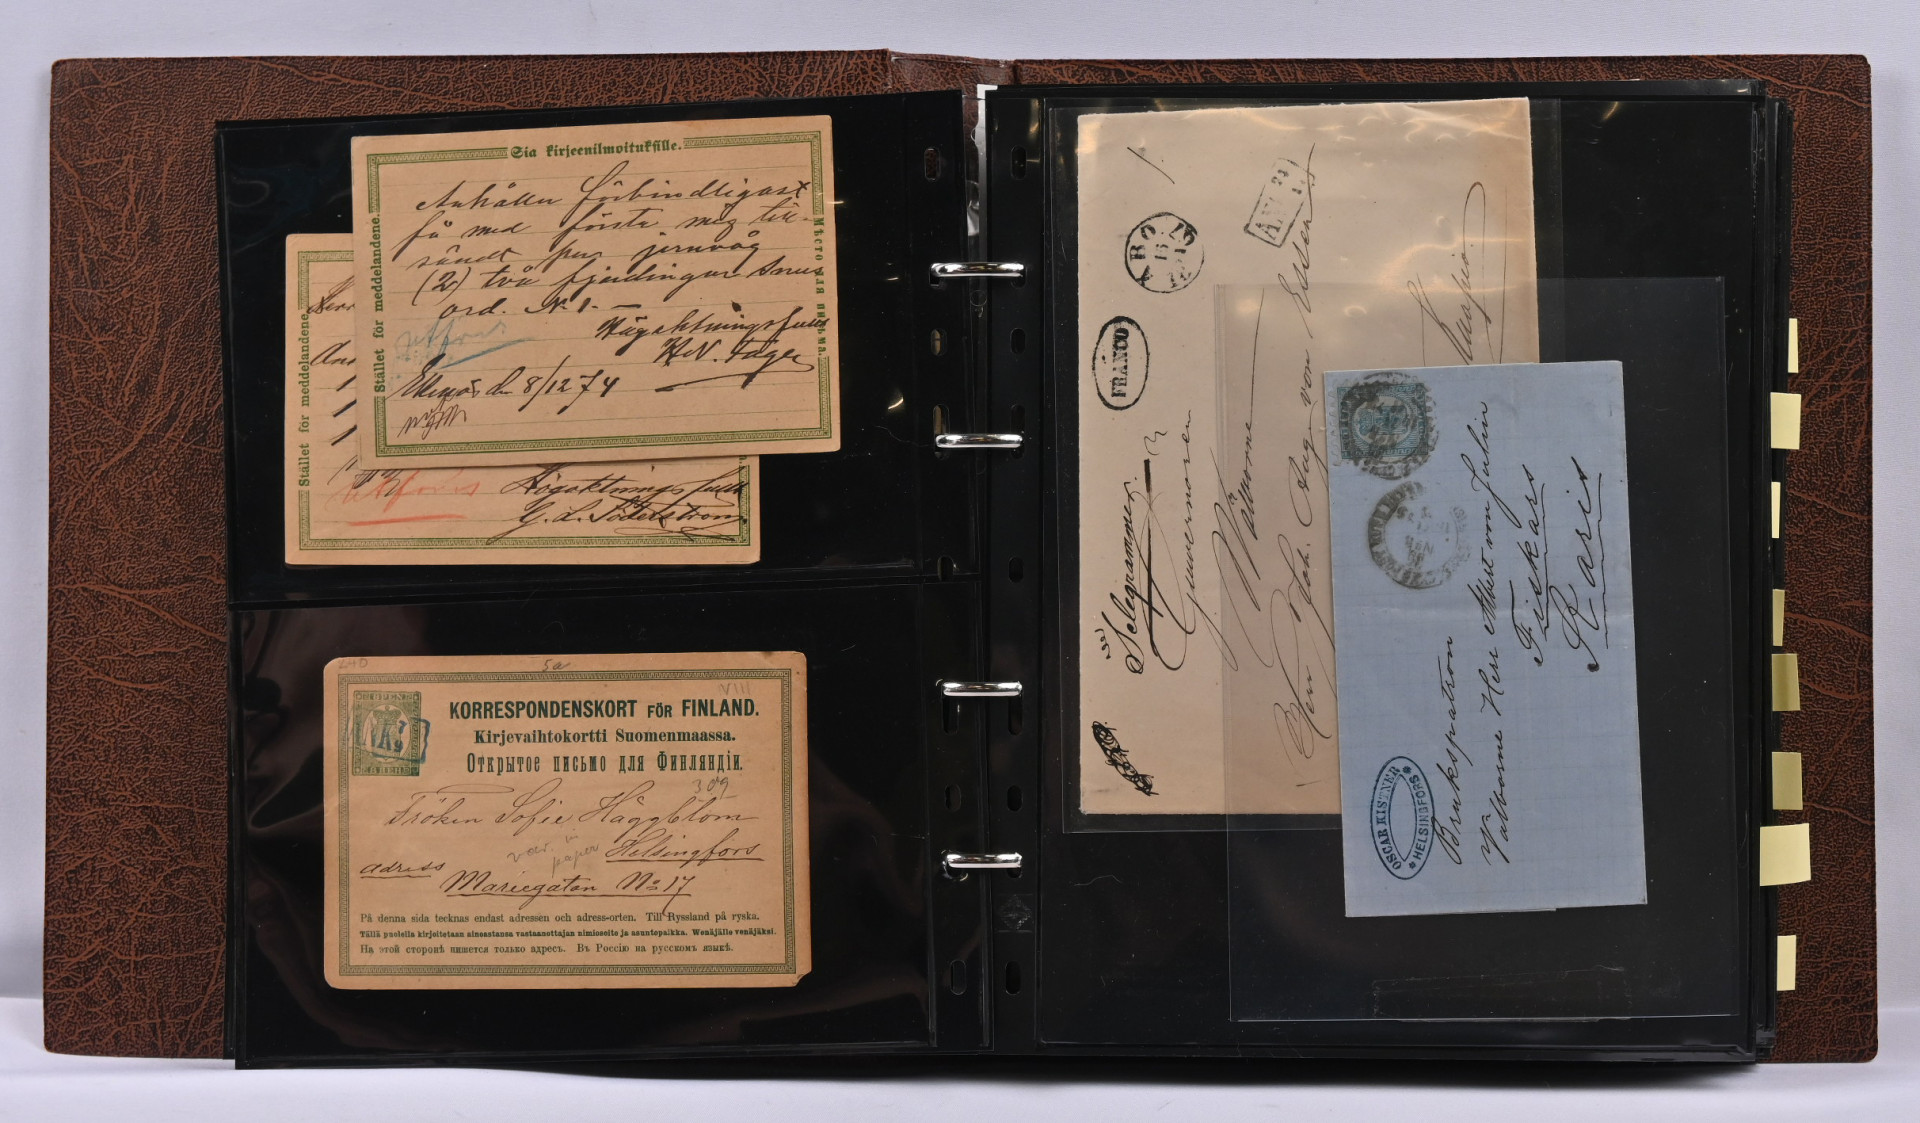 Sia kirjeenilmoituksille.
Stället för meddelandene.
Мѣсто для письма.
Anhåller förbindligast
få med första mig till-
sändt per jernväg
(2) två fjerdingar snus
ord. N 1.
Högaktningsfullt
Ekenäs d. 8/12 74
Stället för meddelandene.
utfordr
Högaktningsfullt
G. L. Söderström
5a
VIII
KORRESPONDENSKORT FÖR FINLAND.
Kirjevaihtokortti Suomenmaassa.
Открытое письмо для Финляндіи.
Fröken Sofie Häggblom
var. in
paper
Helsingfors
adress
Mariegatan No 17
På denna sida tecknas endast adressen och adress-orten. Till Ryssland på ryska.
Tällä puolella kirjoitetaan ainoastansa vastaanottajan nimiosoite ja asuntopaikka. Wenäjälle venäjäksi.
На этой сторонѣ пишется только адресъ. Въ Россію на русскомъ языкѣ.
ABO
ANK
FRANCO
Telegrammer.
Guvernören
Välborne
Herr Joh. Aug. von Essen
Kuopio
OSCAR KISTNER
HELSINGFORS
Brukspatron
Välborne Herr Albert von Julin
Fiskars
Karis